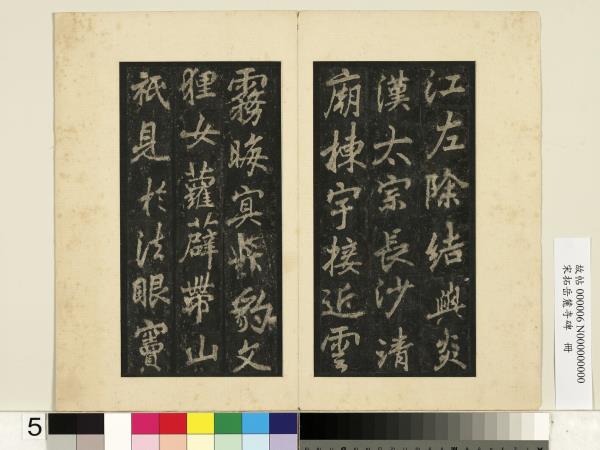 江左除結輿炎
漢太宗長沙清
廟棟宇接近雲
霧晦冥赤豹文
狸女蘿薜帶山
祇見於法眼竇
故帖 000006 N000000000
宋拓岳麓寺碑 冊
5